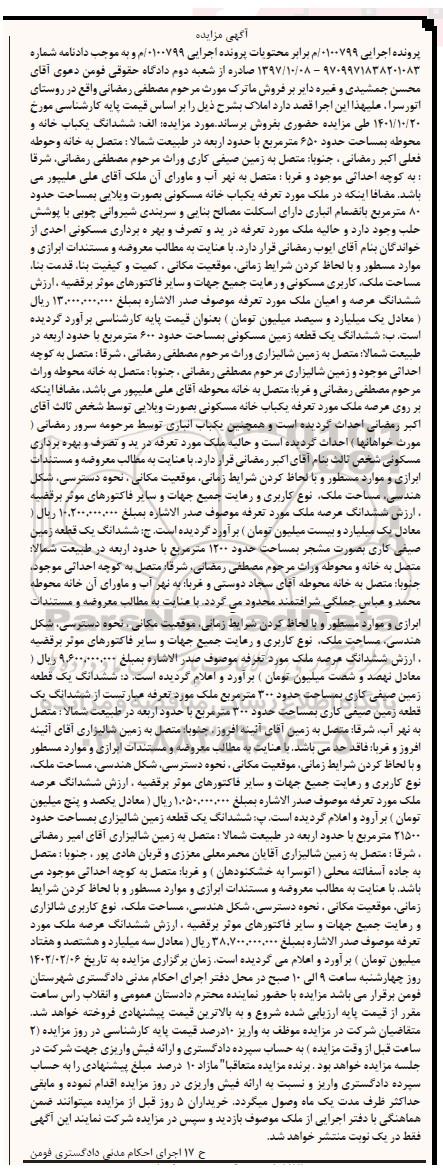 آگهی مزایده
پرونده اجرایی ۰۱۰۰۷۹۹/م برابر محتویات پرونده اجرایی ۰۱۰۰۷۹۹/م و به موجب دادنامه شماره
۹۷۰۹۹۷۱۸۳۸۲۰۱۰۸۳ – ۱۳۹۷/۱۰/۰۸ صادره از شعبه دوم دادگاه حقوقی فومن دعوی آقای
محسن جمشیدی و غیره دایر بر فروش ماترک مورث مرحوم مصطفی رمضانی واقع در روستای
اتورسرا ، علیهذا این اجرا قصد دارد املاک بشرح ذیل را بر اساس قیمت پایه کارشناسی مورخ
۱۴۰۱/۱۰/۲۰ طی مزایده حضوری بفروش برساند.مورد مزایده: الف: ششدانگ یکباب خانه و
محوطه بمساحت حدود ۶۵۰ مترمربع با حدود اربعه در طبیعت شمالا : متصل به خانه وحوطه
فعلی اکبر رمضانی ، جنوبا: متصل به زمین صیفی کاری وراث مرحوم مصطفی رمضانی، شرقا
: به کوچه احداثی موجود و غربا : متصل به نهر آب و ماورای آن ملک آقای علی علیپور می
باشد. مضافا اینکه در ملک مورد تعرفه یکباب خانه مسکونی بصورت ویلایی بمساحت حدود
۸۰ مترمربع بانضمام انباری دارای اسکلت مصالح بنایی و سربندی شیروانی چوبی با پوشش
حلب وجود دارد و حالیه ملک مورد تعرفه در ید و تصرف و بهر ه برداری مسکونی احدی از
خواندگان بنام آقای ایوب رمضانی قرار دارد. با عنایت به مطالب معروضه و مستندات ابرازی و
موارد مسطور و با لحاظ کردن شرایط زمانی، موقعیت مکانی ، کمیت و کیفیت بنا، قدمت بنا،
مساحت ملک، کاربری مسکونی و رعایت جمیع جهات و سایر فاکتورهای موثر برقضیه ، ارزش
ششدانگ عرصه و اعیان ملک مورد تعرفه موصوف صدر الاشاره بمبلغ ۱۳،۰۰۰،۰۰۰،۰۰۰ ریال
( معادل یک میلیارد و سیصد میلیون تومان ) بعنوان قیمت پایه کارشناسی برآورد گردیده
است. ب: ششدانگ یک قطعه زمین مسکونی بمساحت حدود ۶۰۰ مترمربع با حدود اربعه در
طبیعت شمالا: متصل به زمین شالیزاری وراث مرحوم مصطفی رمضانی ، شرقا : متصل به کوچه
احداثی موجود و زمین شالیزاری مرحوم مصطفی رمضانی ، جنوبا : متصل به خانه محوطه وراث
مرحوم مصطفی رمضانی و غربا: متصل به خانه محوطه آقای علی علیپور می باشد، مضافا اینکه
بر روی عرصه ملک مورد تعرفه یکباب خانه مسکونی بصورت ویلایی توسط شخص ثالث آقای
اکبر رمضانی احداث گردیده است و همچنین یکباب انباری توسط مرحومه سرور رمضانی (
مورث خواهانها ) احداث گردیده است و حالیه ملک مورد تعرفه در ید و تصرف و بهره برداری
مسکونی شخص ثالث بنام آقای اکبر رمضانی قرار دارد. با عنایت به مطالب معروضه و مستندات
ابرازی و موارد مسطور و با لحاظ کردن شرایط زمانی، موقعیت مکانی ، نحوه دسترسی، شکل
هندسی، مساحت ملک، نوع کاربری و رعایت جمیع جهات و سایر فاکتورهای موثر برقضیه
، ارزش ششدانگ عرصه ملک مورد تعرفه موصوف صدر الاشاره بمبلغ ۱۰،۲۰۰،۰۰۰،۰۰۰ ریال (
معادل یک میلیارد و بیست میلیون تومان ) برآورد گردیده است. ج: ششدانگ یک قطعه زمین
صیفی کاری بصورت مشجر بمساحت حدود ۱۲۰۰ مترمربع با حدود اربعه در طبیعت شمالا:
متصل به خانه و محوطه وراث مرحوم مصطفی رمضانی، شرقا: متصل به کوچه احداثی موجود،
جنوبا: متصل به خانه محوطه آقای سجاد دوستی و غربا: به نهر آب و ماورای آن خانه محوطه
محمد و عباس جملگی شرافتمند محدود می گردد. با عنایت به مطالب معروضه و مستندات
ابرازی و موارد مسطور و با لحاظ کردن شرایط زمانی، موقعیت مکانی ، نحوه دسترسی، شکل
هندسی، مساحت ملک، نوع کاربری و رعایت جمیع جهات و سایر فاکتورهای موثر برقضیه
، ارزش ششدانگ عرصه ملک مورد تعرفه موصوف صدر الاشاره بمبلغ ۹،۶۰۰،۰۰۰،۰۰۰ ریال (
معادل نهصد و شصت میلیون تومان ) برآورد و اعلام گردیده است. د: ششدانگ یک قطعه
زمین صیفی کاری بمساحت حدود ۳۰۰ مترمربع ملک مورد تعرفه عبارتست از ششدانگ یک
قطعه زمین صیفی کاری بمساحت حدود ۳۰۰ مترمربع با حدود اربعه در طبیعت شمالا : متصل
به نهر آب، شرقا: متصل به زمین آقای آئینه افروز، جنوبا: متصل به زمین شالیزاری آقای آئینه
افروز و غربا: فاقد حد می باشد. با عنایت به مطالب معروضه و مستندات ابرازی و موارد مسطور
و با لحاظ کردن شرایط زمانی، موقعیت مکانی ، نحوه دسترسی، شکل هندسی، مساحت ملک،
نوع کاربری و رعایت جمیع جهات و سایر فاکتورهای موثر برقضیه ، ارزش ششدانگ عرصه
ملک مورد تعرفه موصوف صدر الاشاره بمبلغ ۱،۰۵۰،۰۰۰،۰۰۰ ریال ( معادل یکصد و پنج میلیون
تومان ) برآورد و اعلام گردیده است. پ: ششدانگ یک قطعه زمین شالیزاری بمساحت حدود
۲۱۵۰۰ مترمربع با حدود اربعه در طبیعت شمالا : متصل به زمین شالیزاری آقای امیر رمضانی
، شرقا : متصل به زمین شالیزاری آقایان محمرمعلی معززی و قربان هادی پور ، جنوبا : متصل
به جاده آسفالته محلی ( اتوسرا به خشکنودهان ) و غربا: متصل به کوچه احداثی موجود می
باشد. با عنایت به مطالب معروضه و مستندات ابرازی و موارد مسطور و با لحاظ کردن شرایط
زمانی، موقعیت مکانی ، نحوه دسترسی، شکل هندسی، مساحت ملک، نوع کاربری شالزاری
و رعایت جمیع جهات و سایر فاکتورهای موثر برقضیه ، ارزش ششدانگ عرصه ملک مورد
تعرفه موصوف صدر الاشاره بمبلغ ۳۸،۷۰۰،۰۰۰،۰۰۰ ریال ( معادل سه میلیارد و هشتصد و هفتاد
میلیون تومان ) برآورد و اعلام می گردیده است. زمان برگزاری مزایده به تاریخ ۱۴۰۲/۰۲/۰۶
روز چهارشنبه ساعت ۹ الی ۱۰ صبح در محل دفتر اجرای احکام مدنی دادگستری شهرستان
فومن برقرار می باشد مزایده با حضور نماینده محترم دادستان عمومی و انقلاب راس ساعت
مقرر از قیمت پایه ارزیابی شده شروع و به بالاترین قیمت پیشنهادی فروخته خواهد شد.
متقاضیان شرکت در مزایده موظف به واریز ۱۰درصد قیمت پایه کارشناسی در روز مزایده (۲
ساعت قبل از وقت مزایده ) به حساب سپرده دادگستری و ارائه فیش واریزی جهت شرکت در
جلسه مزایده خواهد بود . برنده مزایده متعاقبا"مازاد ۱۰ درصد مبلغ پیشنهادی را به حساب
سپرده دادگستری واریز و نسبت به ارائه فیش واریزی در روز مزایده اقدام نموده و مابقی
حداکثر ظرف مدت یک ماه وصول میگردد. خریداران ۵ روز قبل از مزایده میتوانند ضمن
هماهنگی با دفتر اجرایی از ملک موصوف بازدید و سپس در مزایده شرکت نمایند این آگهی
فقط در یک نوبت منتشر خواهد شد.
ح ۱۷ اجرای احکام مدنی دادگستری فومن